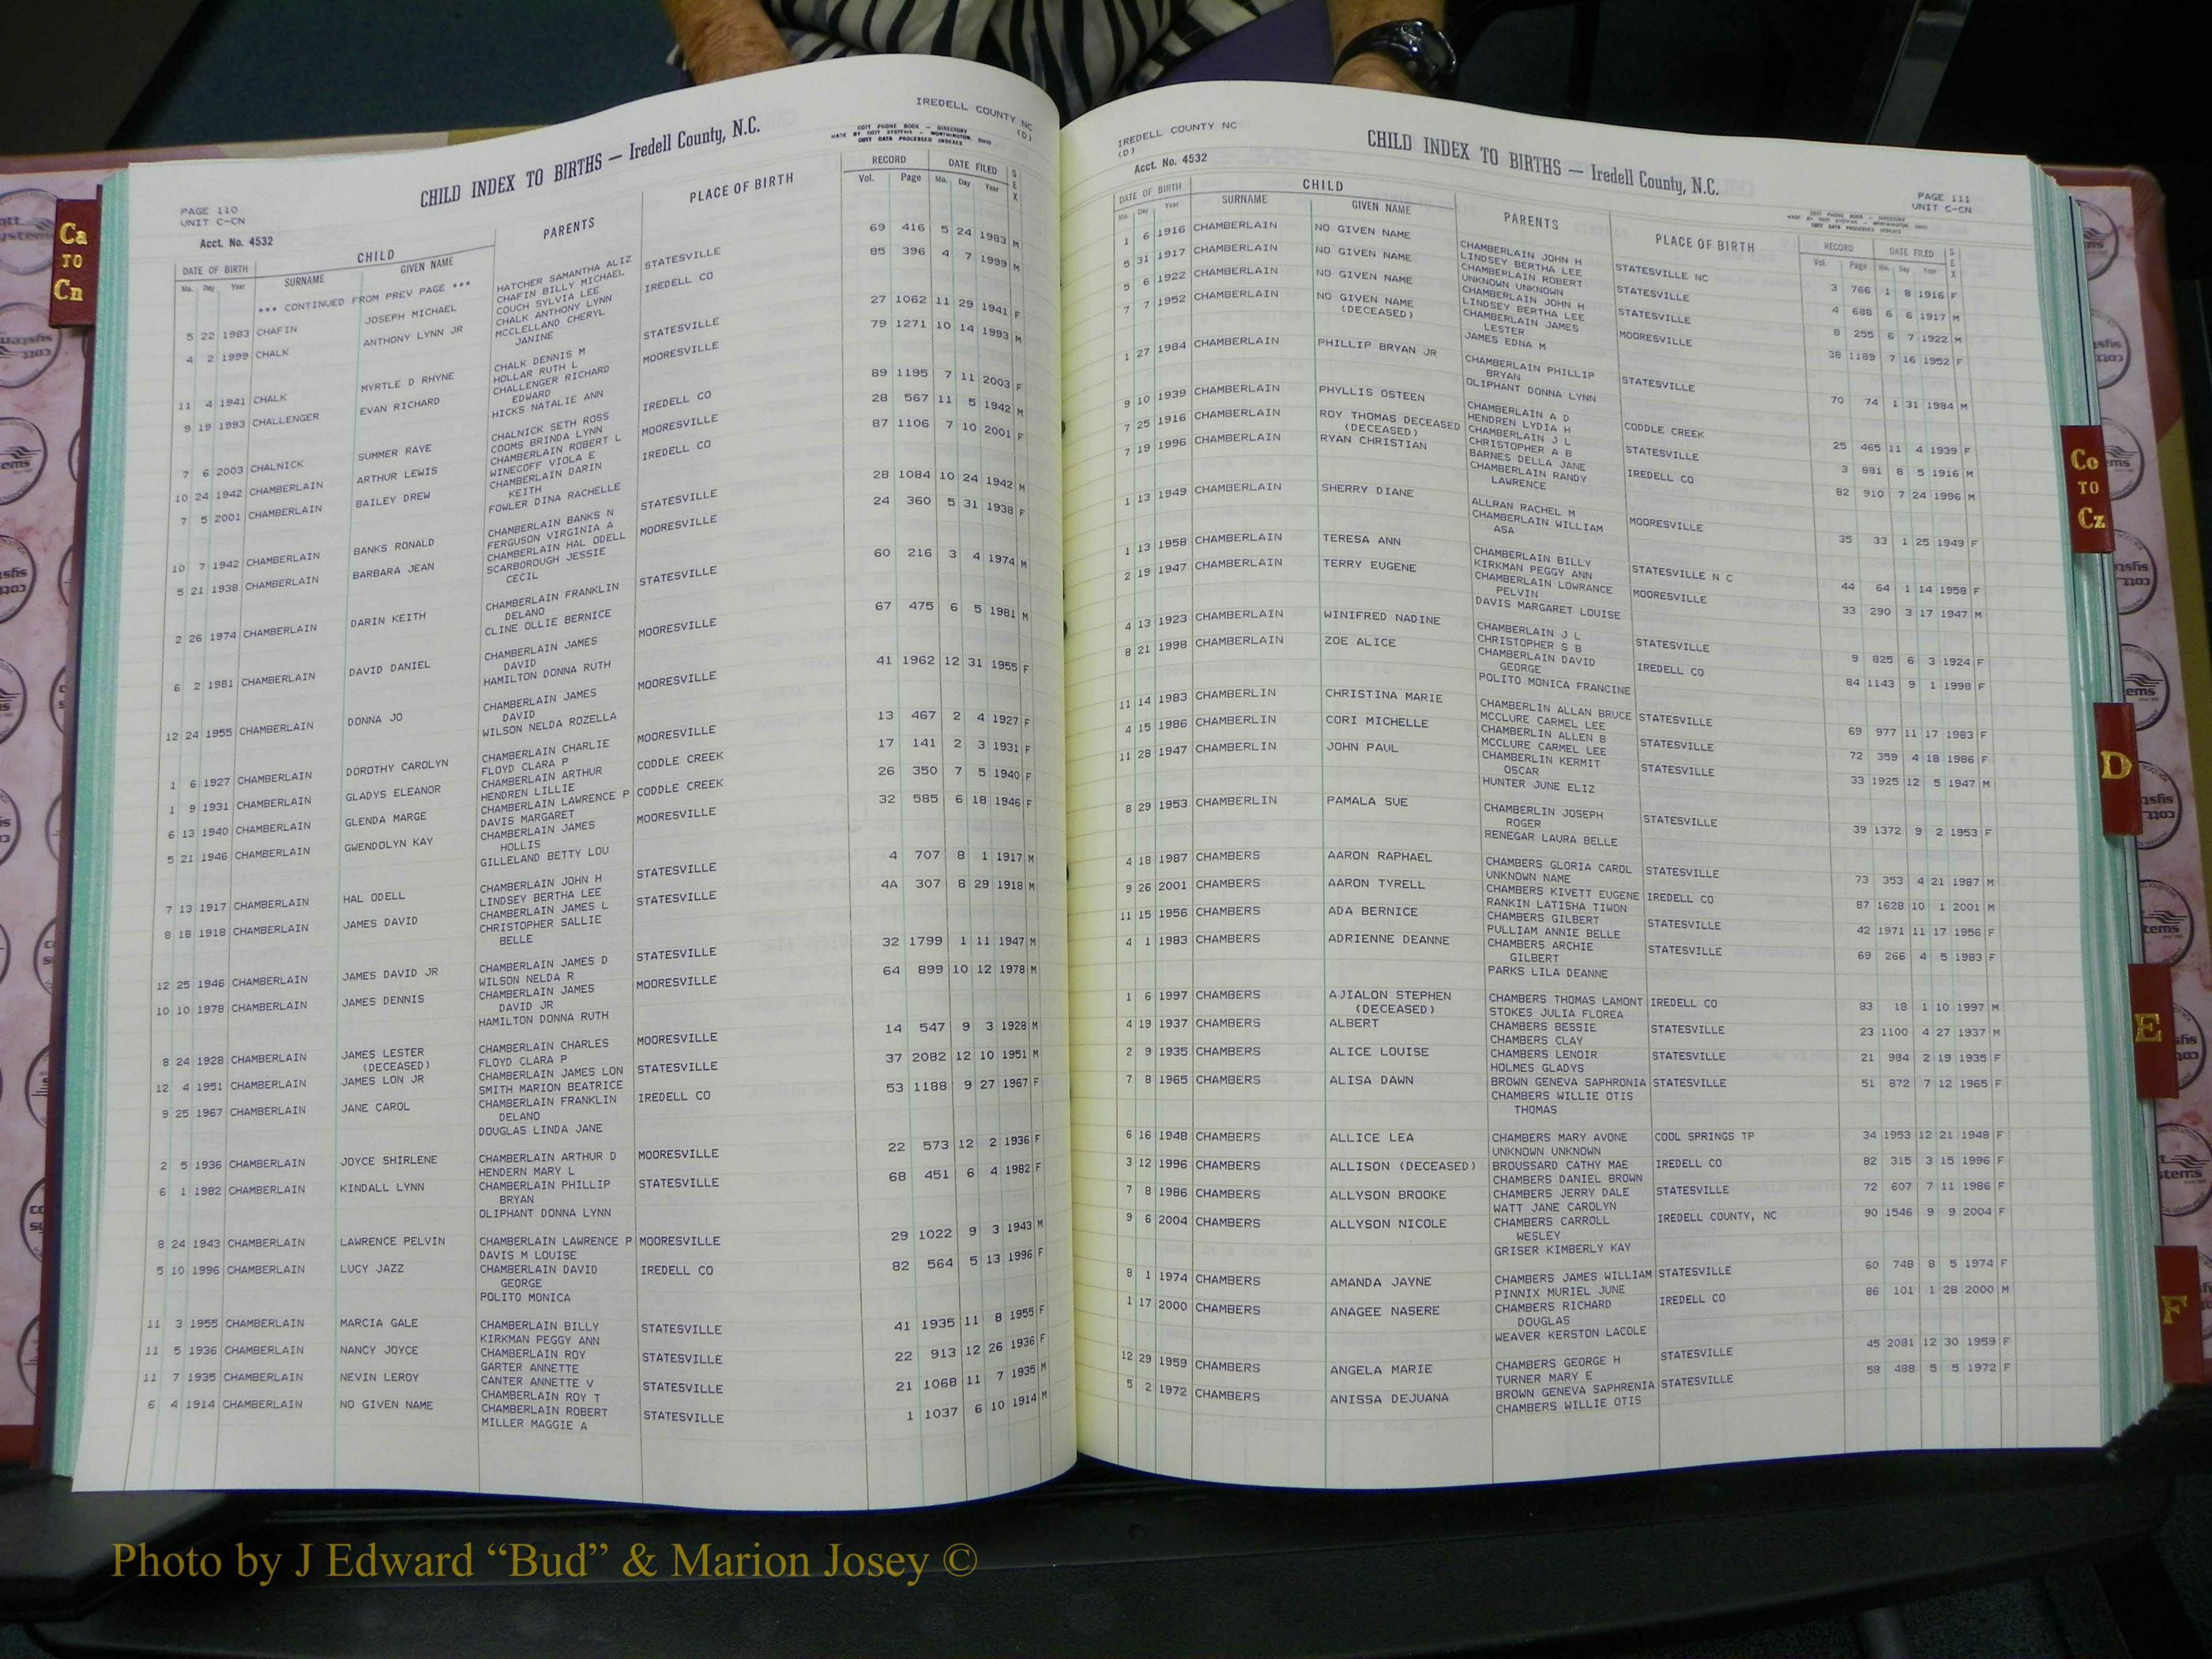 IREDELL COUNTY NC
(D)
COTT PHONE BOOK — DIRECTORY
MADE BY COTT SYSTEMS — WORTHINGTON, OHIO
COTT DATA PROCESSED INDEXES
CHILD INDEX TO BIRTHS — Iredell County, N.C.
PAGE 110
UNIT C-CN
Acct. No. 4532
DATE OF BIRTH CHILD PARENTS PLACE OF BIRTH RECORD DATE FILED SEX
Mo. Day Year SURNAME GIVEN NAME Vol. Page Mo. Day Year
*** CONTINUED FROM PREV PAGE *** HATCHER SAMANTHA ALIZ
5 22 1983 CHAFIN JOSEPH MICHAEL CHAFIN BILLY MICHAEL STATESVILLE 69 416 5 24 1983 M
COUCH SYLVIA LEE
4 2 1999 CHALK ANTHONY LYNN JR CHALK ANTHONY LYNN IREDELL CO 85 396 4 7 1999 M
MCCLELLAND CHERYL
JANINE
11 4 1941 CHALK MYRTLE D RHYNE CHALK DENNIS M STATESVILLE 27 1062 11 29 1941 F
HOLLAR RUTH L
9 19 1993 CHALLENGER EVAN RICHARD CHALLENGER RICHARD MOORESVILLE 79 1271 10 14 1993 M
EDWARD
HICKS NATALIE ANN
7 6 2003 CHALNICK SUMMER RAYE CHALNICK SETH ROSS IREDELL CO 89 1195 7 11 2003 F
COOMS BRINDA LYNN
10 24 1942 CHAMBERLAIN ARTHUR LEWIS CHAMBERLAIN ROBERT L MOORESVILLE 28 567 11 5 1942 M
WINECOFF VIOLA E
7 5 2001 CHAMBERLAIN BAILEY DREW CHAMBERLAIN DARIN IREDELL CO 87 1106 7 10 2001 F
KEITH
FOWLER DINA RACHELLE
10 7 1942 CHAMBERLAIN BANKS RONALD CHAMBERLAIN BANKS N STATESVILLE 28 1084 10 24 1942 M
FERGUSON VIRGINIA A
5 21 1938 CHAMBERLAIN BARBARA JEAN CHAMBERLAIN HAL ODELL MOORESVILLE 24 360 5 31 1938 F
SCARBOROUGH JESSIE
CECIL
2 26 1974 CHAMBERLAIN DARIN KEITH CHAMBERLAIN FRANKLIN STATESVILLE 60 216 3 4 1974 M
DELANO
CLINE OLLIE BERNICE
6 2 1981 CHAMBERLAIN DAVID DANIEL CHAMBERLAIN JAMES MOORESVILLE 67 475 6 5 1981 M
DAVID
HAMILTON DONNA RUTH
12 24 1955 CHAMBERLAIN DONNA JO CHAMBERLAIN JAMES MOORESVILLE 41 1962 12 31 1955 F
DAVID
WILSON NELDA ROZELLA
1 6 1927 CHAMBERLAIN DOROTHY CAROLYN CHAMBERLAIN CHARLIE MOORESVILLE 13 467 2 4 1927 F
FLOYD CLARA P
1 9 1931 CHAMBERLAIN GLADYS ELEANOR CHAMBERLAIN ARTHUR CODDLE CREEK 17 141 2 3 1931 F
HENDREN LILLIE
6 13 1940 CHAMBERLAIN GLENDA MARGE CHAMBERLAIN LAWRENCE P CODDLE CREEK 26 350 7 5 1940 F
DAVIS MARGARET
5 21 1946 CHAMBERLAIN GWENDOLYN KAY CHAMBERLAIN JAMES MOORESVILLE 32 585 6 18 1946 F
HOLLIS
GILLELAND BETTY LOU
7 13 1917 CHAMBERLAIN HAL ODELL CHAMBERLAIN JOHN H STATESVILLE 4 707 8 1 1917 M
LINDSEY BERTHA LEE
8 18 1918 CHAMBERLAIN JAMES DAVID CHAMBERLAIN JAMES L STATESVILLE 4A 307 8 29 1918 M
CHRISTOPHER SALLIE
BELLE
12 25 1946 CHAMBERLAIN JAMES DAVID JR CHAMBERLAIN JAMES D STATESVILLE 32 1799 1 11 1947 M
WILSON NELDA R
10 10 1978 CHAMBERLAIN JAMES DENNIS CHAMBERLAIN JAMES MOORESVILLE 64 899 10 12 1978 M
DAVID JR
HAMILTON DONNA RUTH
8 24 1928 CHAMBERLAIN JAMES LESTER CHAMBERLAIN CHARLES MOORESVILLE 14 547 9 3 1928 M
(DECEASED) FLOYD CLARA P
12 4 1951 CHAMBERLAIN JAMES LON JR CHAMBERLAIN JAMES LON STATESVILLE 37 2082 12 10 1951 M
SMITH MARION BEATRICE
9 25 1967 CHAMBERLAIN JANE CAROL CHAMBERLAIN FRANKLIN IREDELL CO 53 1188 9 27 1967 F
DELANO
DOUGLAS LINDA JANE
2 5 1936 CHAMBERLAIN JOYCE SHIRLENE CHAMBERLAIN ARTHUR D MOORESVILLE 22 573 12 2 1936 F
HENDERN MARY L
6 1 1982 CHAMBERLAIN KINDALL LYNN CHAMBERLAIN PHILLIP STATESVILLE 68 451 6 4 1982 F
BRYAN
OLIPHANT DONNA LYNN
8 24 1943 CHAMBERLAIN LAWRENCE PELVIN CHAMBERLAIN LAWRENCE P MOORESVILLE 29 1022 9 3 1943 M
DAVIS M LOUISE
5 10 1996 CHAMBERLAIN LUCY JAZZ CHAMBERLAIN DAVID IREDELL CO 82 564 5 13 1996 F
GEORGE
POLITO MONICA
11 3 1955 CHAMBERLAIN MARCIA GALE CHAMBERLAIN BILLY STATESVILLE 41 1935 11 8 1955 F
KIRKMAN PEGGY ANN
11 5 1936 CHAMBERLAIN NANCY JOYCE CHAMBERLAIN ROY STATESVILLE 22 913 12 26 1936 F
GARTER ANNETTE
11 7 1935 CHAMBERLAIN NEVIN LEROY CANTER ANNETTE V STATESVILLE 21 1068 11 7 1935 M
CHAMBERLAIN ROY T
6 4 1914 CHAMBERLAIN NO GIVEN NAME CHAMBERLAIN ROBERT STATESVILLE 1 1037 6 10 1914 M
MILLER MAGGIE A
IREDELL COUNTY NC
(D)
Acct. No. 4532
CHILD INDEX TO BIRTHS — Iredell County, N.C.
PAGE 111
UNIT C-CN
COTT PHONE BOOK — DIRECTORY
MADE BY COTT SYSTEMS — WORTHINGTON, OHIO
COTT DATA PROCESSED INDEXES
DATE OF BIRTH CHILD PARENTS PLACE OF BIRTH RECORD DATE FILED SEX
Mo. Day Year SURNAME GIVEN NAME Vol. Page Mo. Day Year
1 6 1916 CHAMBERLAIN NO GIVEN NAME CHAMBERLAIN JOHN H STATESVILLE NC 3 766 1 8 1916 F
LINDSEY BERTHA LEE
5 31 1917 CHAMBERLAIN NO GIVEN NAME CHAMBERLAIN ROBERT STATESVILLE 4 688 6 6 1917 M
UNKNOWN UNKNOWN
5 6 1922 CHAMBERLAIN NO GIVEN NAME CHAMBERLAIN JOHN H STATESVILLE 8 255 6 7 1922 M
LINDSEY BERTHA LEE
7 7 1952 CHAMBERLAIN NO GIVEN NAME CHAMBERLAIN JAMES MOORESVILLE 38 1189 7 16 1952 F
(DECEASED) LESTER
JAMES EDNA M
1 27 1984 CHAMBERLAIN PHILLIP BRYAN JR CHAMBERLAIN PHILLIP STATESVILLE 70 74 1 31 1984 M
BRYAN
OLIPHANT DONNA LYNN
9 10 1939 CHAMBERLAIN PHYLLIS OSTEEN CHAMBERLAIN A D CODDLE CREEK 25 465 11 4 1939 F
HENDREN LYDIA H
7 25 1916 CHAMBERLAIN ROY THOMAS DECEASED CHAMBERLAIN J L STATESVILLE 3 881 8 5 1916 M
(DECEASED) CHRISTOPHER A B
7 19 1996 CHAMBERLAIN RYAN CHRISTIAN BARNES DELLA JANE IREDELL CO 82 910 7 24 1996 M
CHAMBERLAIN RANDY
LAWRENCE
1 13 1949 CHAMBERLAIN SHERRY DIANE ALLRAN RACHEL M MOORESVILLE 35 33 1 25 1949 F
CHAMBERLAIN WILLIAM
ASA
1 13 1958 CHAMBERLAIN TERESA ANN CHAMBERLAIN BILLY STATESVILLE N C 44 64 1 14 1958 F
KIRKMAN PEGGY ANN
2 19 1947 CHAMBERLAIN TERRY EUGENE CHAMBERLAIN LOWRANCE MOORESVILLE 33 290 3 17 1947 M
PELVIN
DAVIS MARGARET LOUISE
4 13 1923 CHAMBERLAIN WINIFRED NADINE CHAMBERLAIN J L STATESVILLE 9 825 6 3 1924 F
CHRISTOPHER S B
8 21 1998 CHAMBERLAIN ZOE ALICE CHAMBERLAIN DAVID IREDELL CO 84 1143 9 1 1998 F
GEORGE
POLITO MONICA FRANCINE
11 14 1983 CHAMBERLIN CHRISTINA MARIE CHAMBERLIN ALLAN BRUCE STATESVILLE 69 977 11 17 1983 F
MCCLURE CARMEL LEE
4 15 1986 CHAMBERLIN CORI MICHELLE CHAMBERLIN ALLEN B STATESVILLE 72 359 4 18 1986 F
MCCLURE CARMEL LEE
11 28 1947 CHAMBERLIN JOHN PAUL CHAMBERLIN KERMIT STATESVILLE 33 1925 12 5 1947 M
OSCAR
HUNTER JUNE ELIZ
8 29 1953 CHAMBERLIN PAMALA SUE CHAMBERLIN JOSEPH STATESVILLE 39 1372 9 2 1953 F
ROGER
RENEGAR LAURA BELLE
4 18 1987 CHAMBERS AARON RAPHAEL CHAMBERS GLORIA CAROL STATESVILLE 73 353 4 21 1987 M
UNKNOWN NAME
9 26 2001 CHAMBERS AARON TYRELL CHAMBERS KIVETT EUGENE IREDELL CO 87 1628 10 1 2001 M
RANKIN LATISHA TIWON
11 15 1956 CHAMBERS ADA BERNICE CHAMBERS GILBERT STATESVILLE 42 1971 11 17 1956 F
PULLIAM ANNIE BELLE
4 1 1983 CHAMBERS ADRIENNE DEANNE CHAMBERS ARCHIE STATESVILLE 69 266 4 5 1983 F
GILBERT
PARKS LILA DEANNE
1 6 1997 CHAMBERS AJIALON STEPHEN CHAMBERS THOMAS LAMONT IREDELL CO 83 18 1 10 1997 M
(DECEASED) STOKES JULIA FLOREA
4 19 1937 CHAMBERS ALBERT CHAMBERS BESSIE STATESVILLE 23 1100 4 27 1937 M
CHAMBERS CLAY
2 9 1935 CHAMBERS ALICE LOUISE CHAMBERS LENOIR STATESVILLE 21 984 2 19 1935 F
HOLMES GLADYS
7 8 1965 CHAMBERS ALISA DAWN BROWN GENEVA SAPHRONIA STATESVILLE 51 872 7 12 1965 F
CHAMBERS WILLIE OTIS
THOMAS
6 16 1948 CHAMBERS ALLICE LEA CHAMBERS MARY AVONE COOL SPRINGS TP 34 1953 12 21 1948 F
UNKNOWN UNKNOWN
3 12 1996 CHAMBERS ALLISON (DECEASED) BROUSSARD CATHY MAE IREDELL CO 82 315 3 15 1996 F
CHAMBERS DANIEL BROWN
7 8 1986 CHAMBERS ALLYSON BROOKE CHAMBERS JERRY DALE STATESVILLE 72 607 7 11 1986 F
WATT JANE CAROLYN
9 6 2004 CHAMBERS ALLYSON NICOLE CHAMBERS CARROLL IREDELL COUNTY, NC 90 1546 9 9 2004 F
WESLEY
GRISER KIMBERLY KAY
8 1 1974 CHAMBERS AMANDA JAYNE CHAMBERS JAMES WILLIAM STATESVILLE 60 748 8 5 1974 F
PINNIX MURIEL JUNE
1 17 2000 CHAMBERS ANAGEE NASERE CHAMBERS RICHARD IREDELL CO 86 101 1 28 2000 M
DOUGLAS
WEAVER KERSTON LACOLE
12 29 1959 CHAMBERS ANGELA MARIE CHAMBERS GEORGE H STATESVILLE 45 2081 12 30 1959 F
TURNER MARY E
5 2 1972 CHAMBERS ANISSA DEJUANA BROWN GENEVA SAPHRENIA STATESVILLE 58 488 5 5 1972 F
CHAMBERS WILLIE OTIS
Ca
TO
Cn
Co
TO
Cz
D
E
F
Photo by J Edward “Bud” & Marion Josey ©